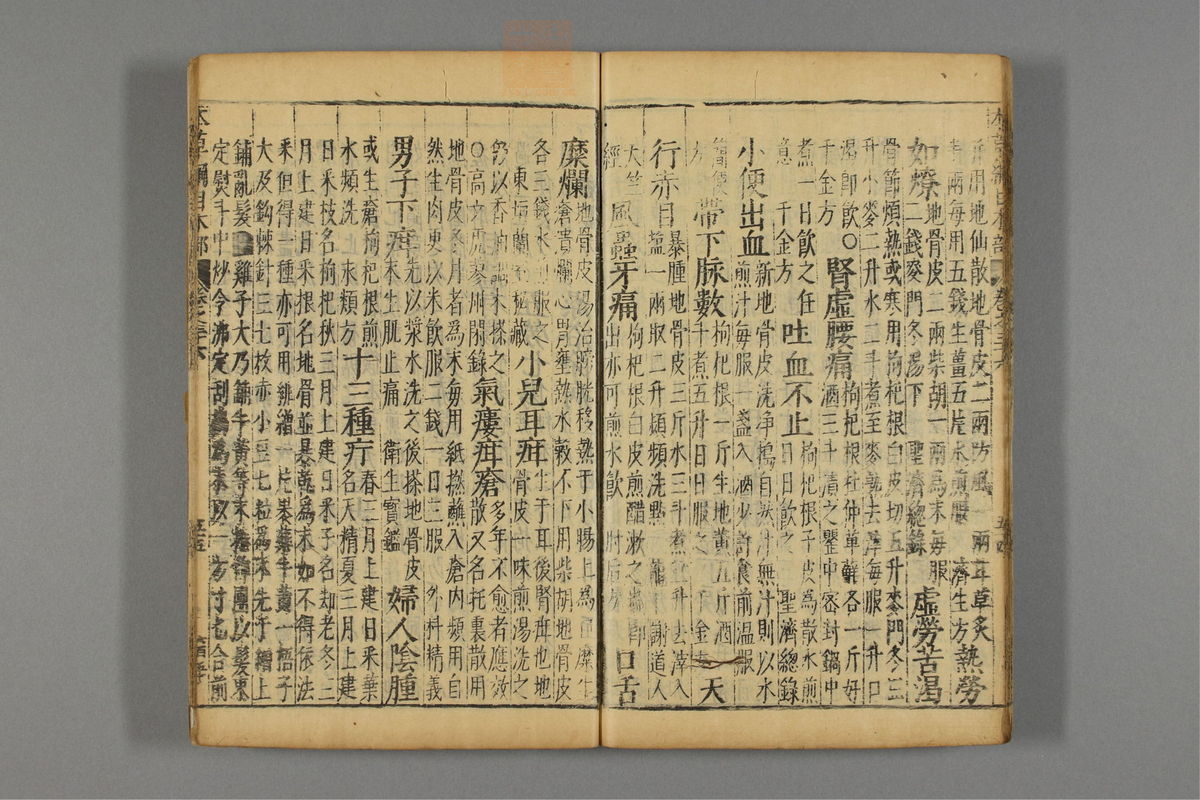 用地仙散地骨皮二兩防風一兩甘草炙
兩每用五錢生薑五片水煎服　濟生方熱勞
如燎地骨皮二兩柴胡一兩為末每服
二錢麥門冬湯下　聖濟總錄虛勞苦渴
骨節煩熱或寒用枸杞根白皮切五升麥門冬三
升小麥二升水二斗煮至麥熟去滓每服一升口
渴即飲○腎虛腰痛枸杞根杜仲萆薢各一斤好
千金方　酒三斗漬之罌中密封鍋中
煮一日飲之任　吐血不止枸杞根子皮為散水煎
意　千金方　日日飲之　聖濟總錄
小便出血新地骨皮洗淨搗自然汁無汁則以水
煎汁每服一盞入酒少許食前溫服
簡便方　帶下脉數枸杞根一斤生地黃五斤酒
千煮五升日日服之　千金　天
行赤目暴腫地骨皮三斤水三斗煮三升去滓入
鹽一兩取二升頻頻洗點　謝道人
天竺經　風蟲牙痛枸杞根白皮煎醋漱之蟲即
出亦可煎水飲　肘後方　口舌
糜爛地骨皮湯治膀胱移熱于小腸上為口糜生
瘡潰爛心胃壅熱水穀不下用柴胡地骨皮
各三錢水煎服之　小兒耳疳生于耳後腎疳也地
東垣蘭室秘藏　骨皮一味煎湯洗之
仍以香油調末搽之　氣瘻疳瘡多年不愈者應效
○高文虎蓼州閒錄　散又名托裏散用
地骨皮冬月者為末每用紙撚蘸入瘡內頻用自
然生肉更以米飲服二錢一日三服　外科精義
男子下疳先以漿水洗之後搽地骨皮
末生肌止痛　衛生寶鑑　婦人陰腫
或生瘡枸杞根煎　十三種疔春三月上建日采葉
水頻洗　永類方　名天精夏三月上建
日采枝名枸杞秋三月上建日采子名却老冬三
月上建日采根名地骨並暴乾為末如不得依法
采但得一種亦可用緋繒一片裹藥牛黃一梧子
大及鈎棘針三七枚赤小豆七粒為末先于繒上
鋪亂髮雞子大乃鋪牛黃等末卷作團以髮束
定熨斗中炒令沸定刮擣為末又一方寸匕合前
本草綱目木部